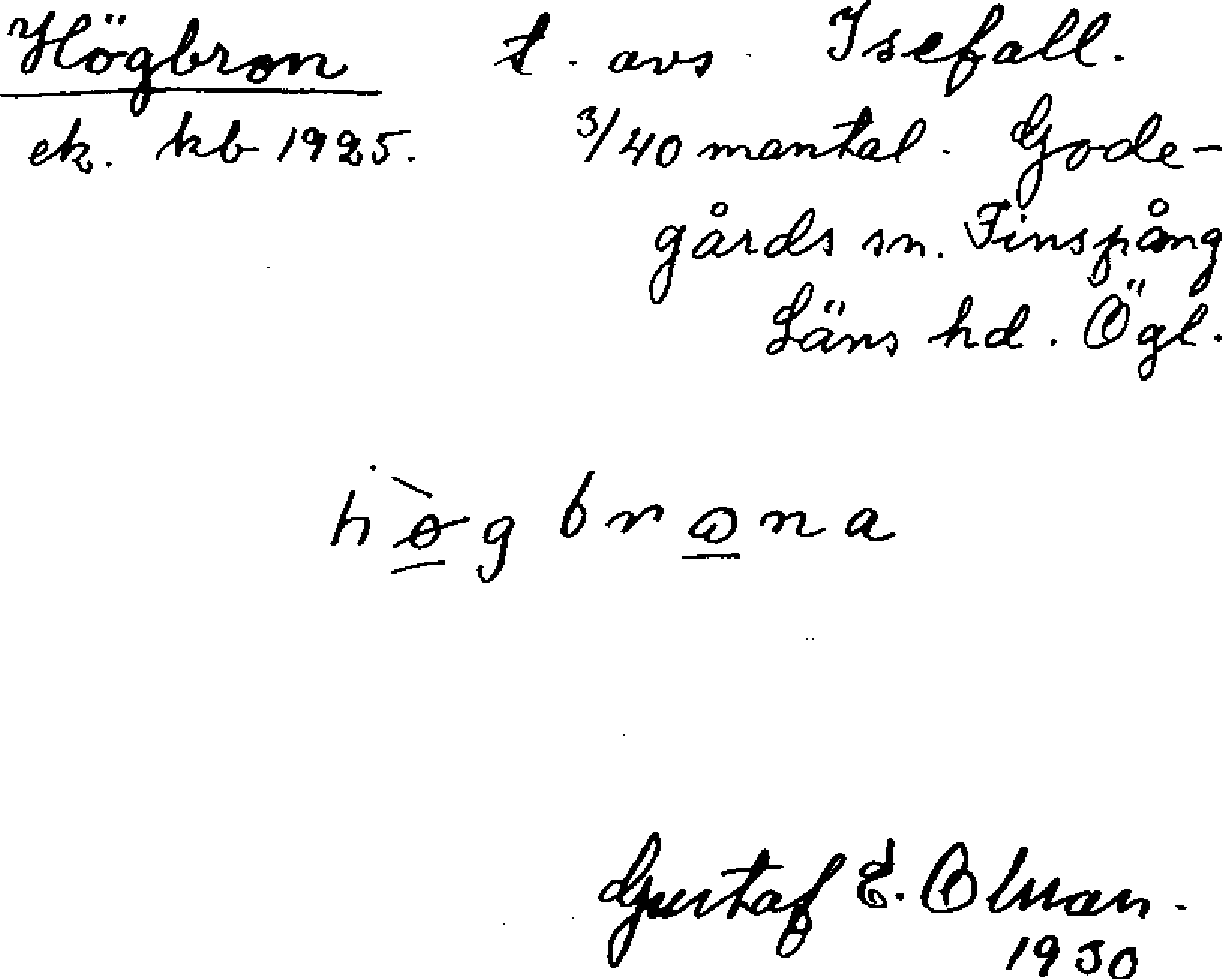 Högbron t. avs. Isefall.
ek. kb 1925. 3/40 mantal. Gode-
gårds sn. Finspång
Läns hd. Ögl.
hø̀gbrona
Gustaf E. Olman.
1930